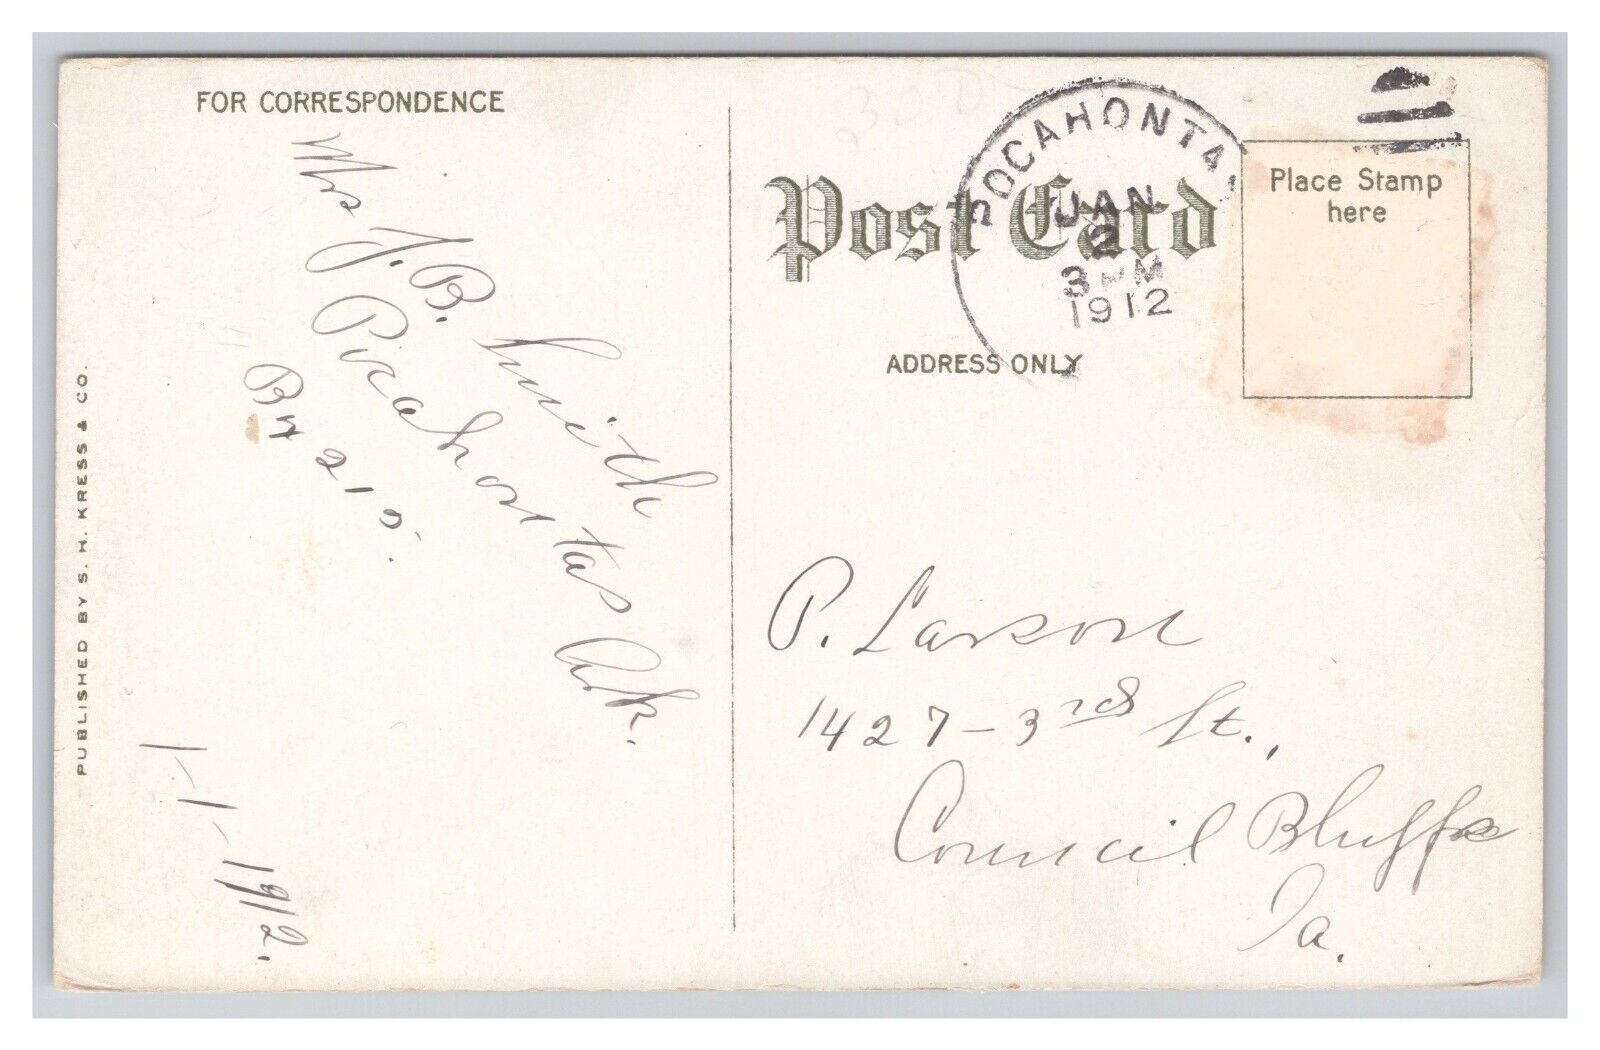 FOR CORRESPONDENCE
Mrs J. B. Smith
Pocahontas Ark.
Bx 215.
1-1-1912.
PUBLISHED BY S. H. KRESS & CO.
POCAHONTA
JAN
2
3 PM
1912
Post Card
Place Stamp
here
ADDRESS ONLY
P. Larson
1427-3rd St.,
Council Bluffs
Ia.